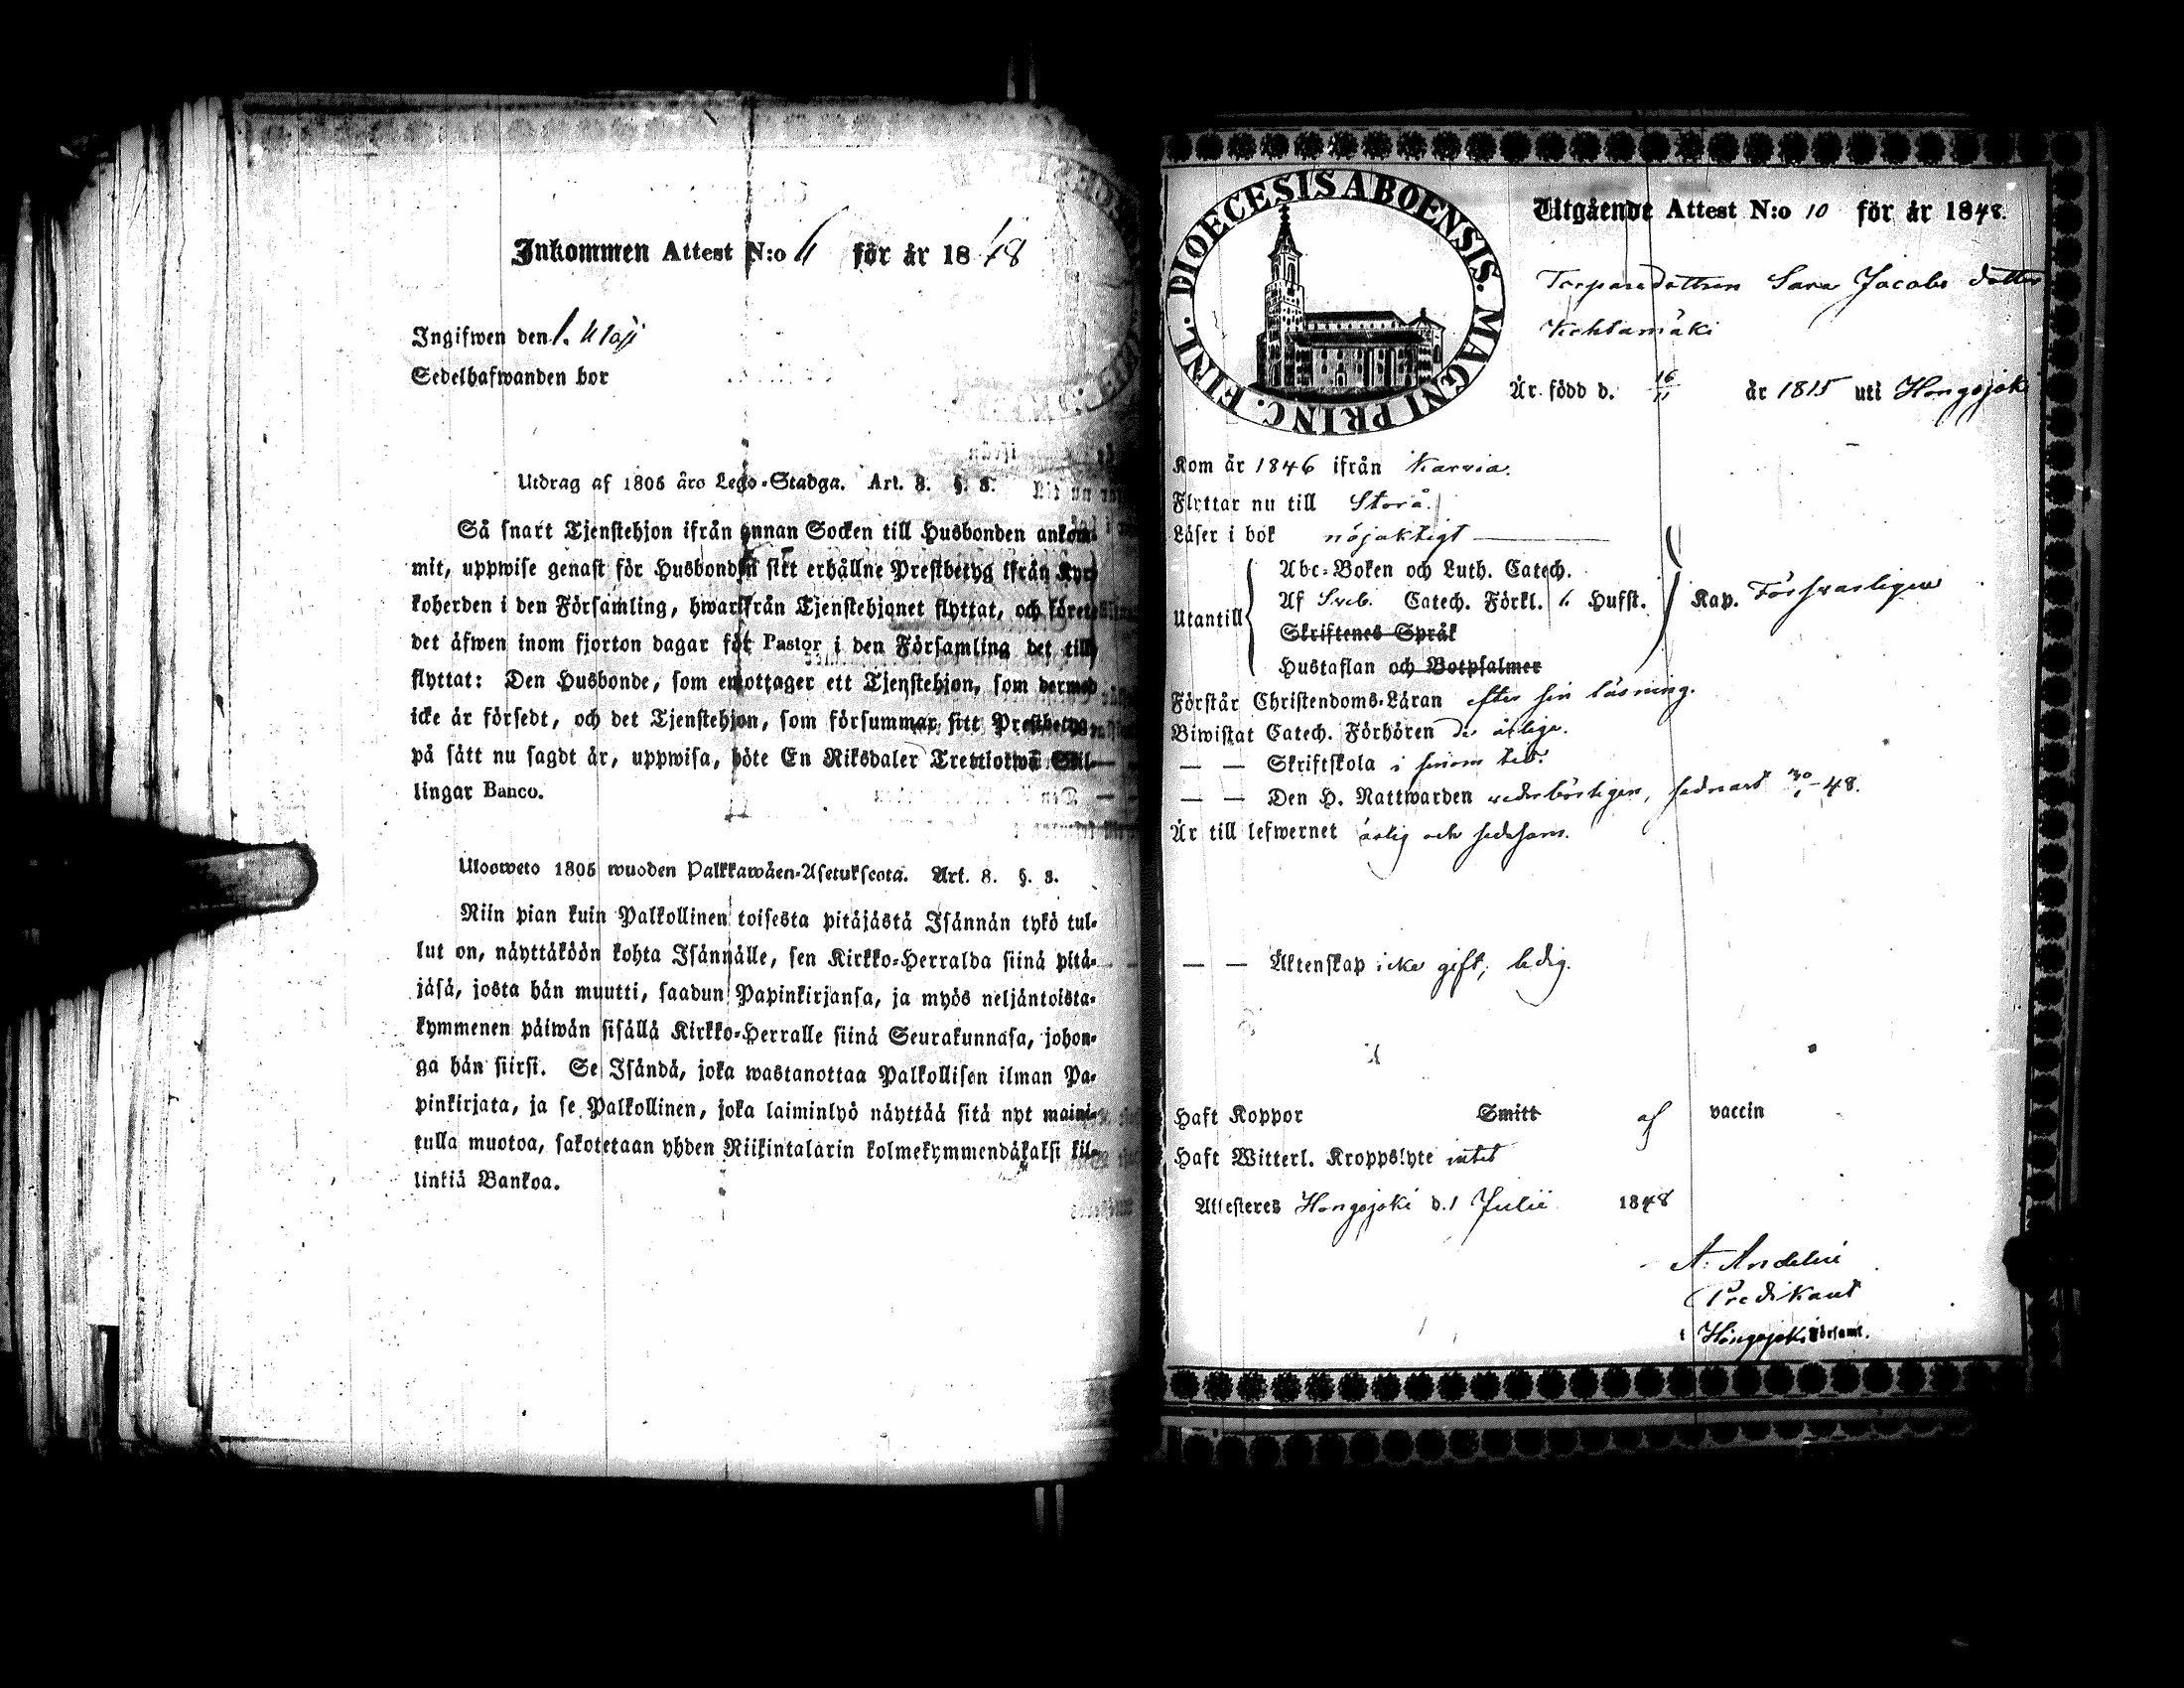 Inkommen Attest N:o för år 18 48
Ingifwen den 1. Maji
Sedelhafwanden bor
Utdrag af 1805 års Lego-Stadga. Art. 8. §. 8.
Så snart Tjenstehjon ifrån annan Socken till Husbonden ankom-
mit, uppwise genast för Husbonden sitt erhållne Prestbetyg ifrån Kyr-
koherden i den Församling, hwarifrån Tjenstehjonet flyttat, och förete
det äfwen inom fjorton dagar för Pastor i den Församling det till
flyttat: Den Husbonde, som emottager ett Tjenstehjon, som dermed
icke är försedt, och det Tjenstehjon, som försummar sitt Prestbetyg,
på sätt nu sagdt är, uppwisa, böte En Riksdaler Trettiotwå Skil-
lingar Banco.
Ulosweto 1805 wuoden Palkkawäen-Asetuksesta. Art. 8. §. 8.
Niin pian kuin Palkollinen toisesta pitäjästä Isännän tykö tul-
lut on, näyttäköön kohta Isännälle, sen Kirkko-Herralda siinä pitä-
jäsä, josta hän muutti, saadun Papinkirjansa, ja myös neljäntoista-
kymmenen päiwän sisällä Kirkko-Herralle siinä Seurakunnasa, johon-
ga hän siirsi. Se Isändä, joka wastanottaa Palkollisen ilman Pa-
pinkirjata, ja se Palkollinen, joka laiminlyö näyttää sitä nyt maini-
tulla muotoa, sakotetaan yhden Riikintalarin kolmekymmendäkaksi kil-
linkiä Bankoa.
DIOECESIS ABOENSIS. MAGNI PRINC. FINL.
Utgående Attest N:o 10 för år 1848.
Torparedottren Sara Jacobs dotter
Kohtamäki
Är född d. 16/11 år 1815 uti Hongojoki
Kom år 1846 ifrån Karvia.
Flyttar nu till Storå.
Läser i bok nöjaktigt
Utantill
Abc-Boken och Luth. Catech.
Af Sveb. Catech. Förkl. 6. Hufst. Kap. Försvarligen
Skriftenes Språk
Hustaflan och Botpsalmer
Förstår Christendoms-Läran efter sin läsning.
Biwistat Catech. Förhören de årliga.
— — Skriftskola i sinom tid.
— — Den H. Nattwarden vederbörligen, sednast 30/4-48.
Är till lefwernet ärlig och sedesam.
— — Äktenskap icke gift, ledig.
Haft Koppor Smitt af vaccin
Haft Witterl. Kroppslyte intet
Attesteres Hongojoki d. 1 Julii 1848
A. Andelin
Predikant
i Hongojoki Församl.